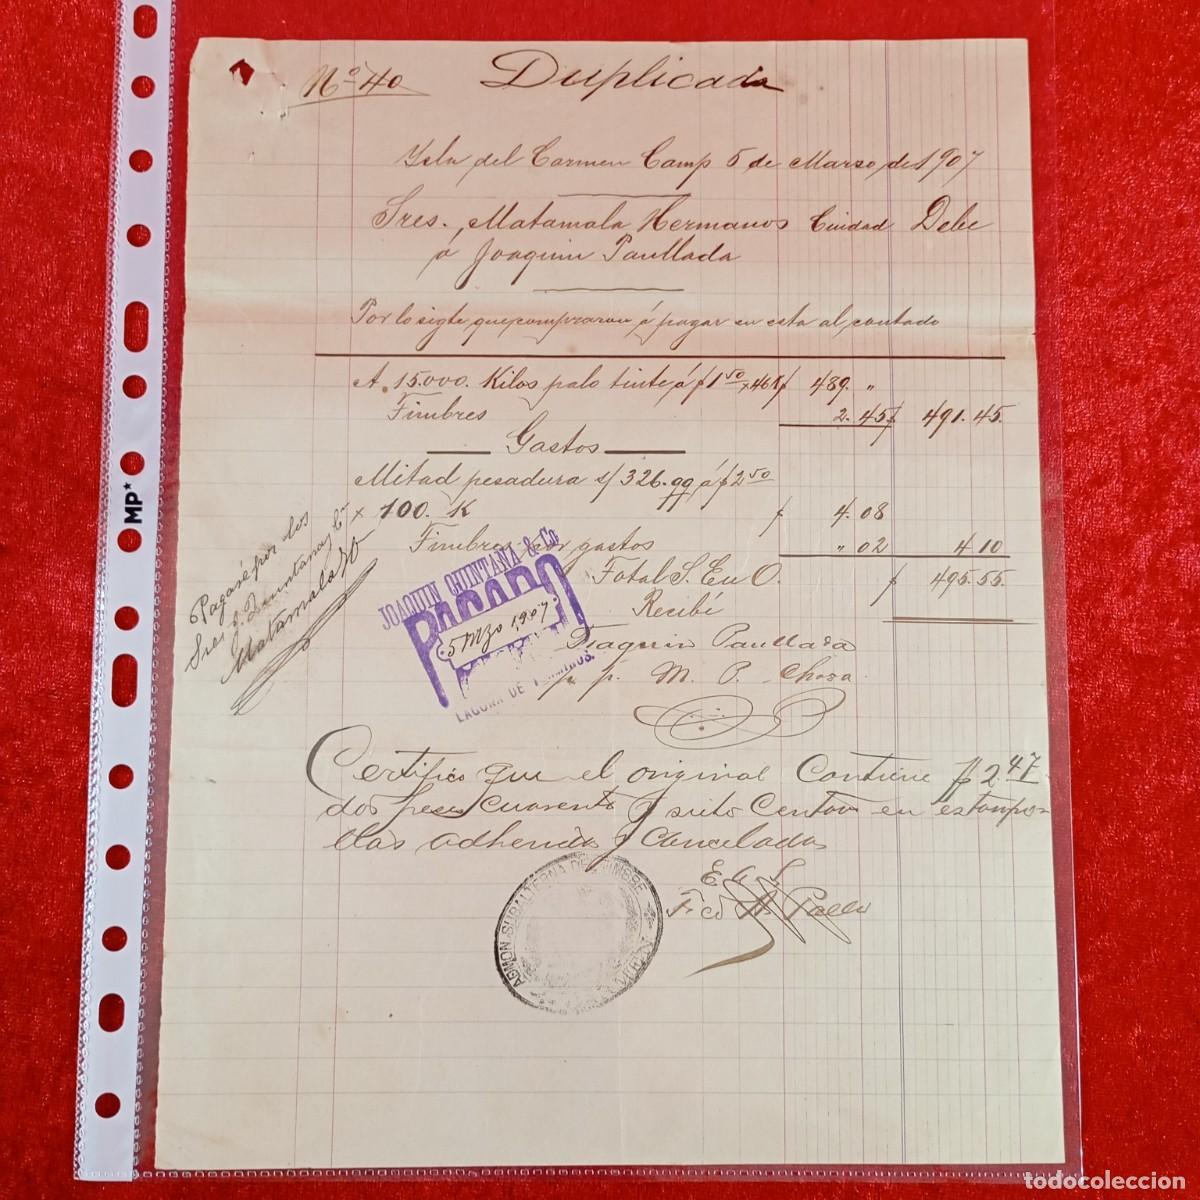 Nº 40 Duplicada
Ysla del Carmen Camp 5 de Marzo de 1907
Sres. Matamala Hermanos Ciudad Debe
á Joaquin Paullada
Por lo sigte que compraron á pagar en esta al contado
A. 15.000. Kilos palo tinte á $1 50 x 46 K $ 489. "
Timbres 2.45 $ 491.45.
Gastos
Mitad pesadura s/ 326.qq á $2 50
x 100. K $ 4.08
Timbres por gastos " 02 4 10
Total S. E u O. $ 495.55.
Recibí
Joaquin Paullada
p. p. M. P. Chosa
Pagaré por los
Sres J. Quintana y Cª
Matamala Hº
JOAQUIN QUINTANA & Co
PAGADO
5 Mzo 1907.
LAGUNA DE TERMINOS.
Certifico que el original Contiene $ 2.47
dos pesos cuarenta y siete Centavos en estampi-
llas adheridas y Canceladas
E. A. S.
ADMON SUBALTERNA DEL TIMBRE
MP
todocoleccion